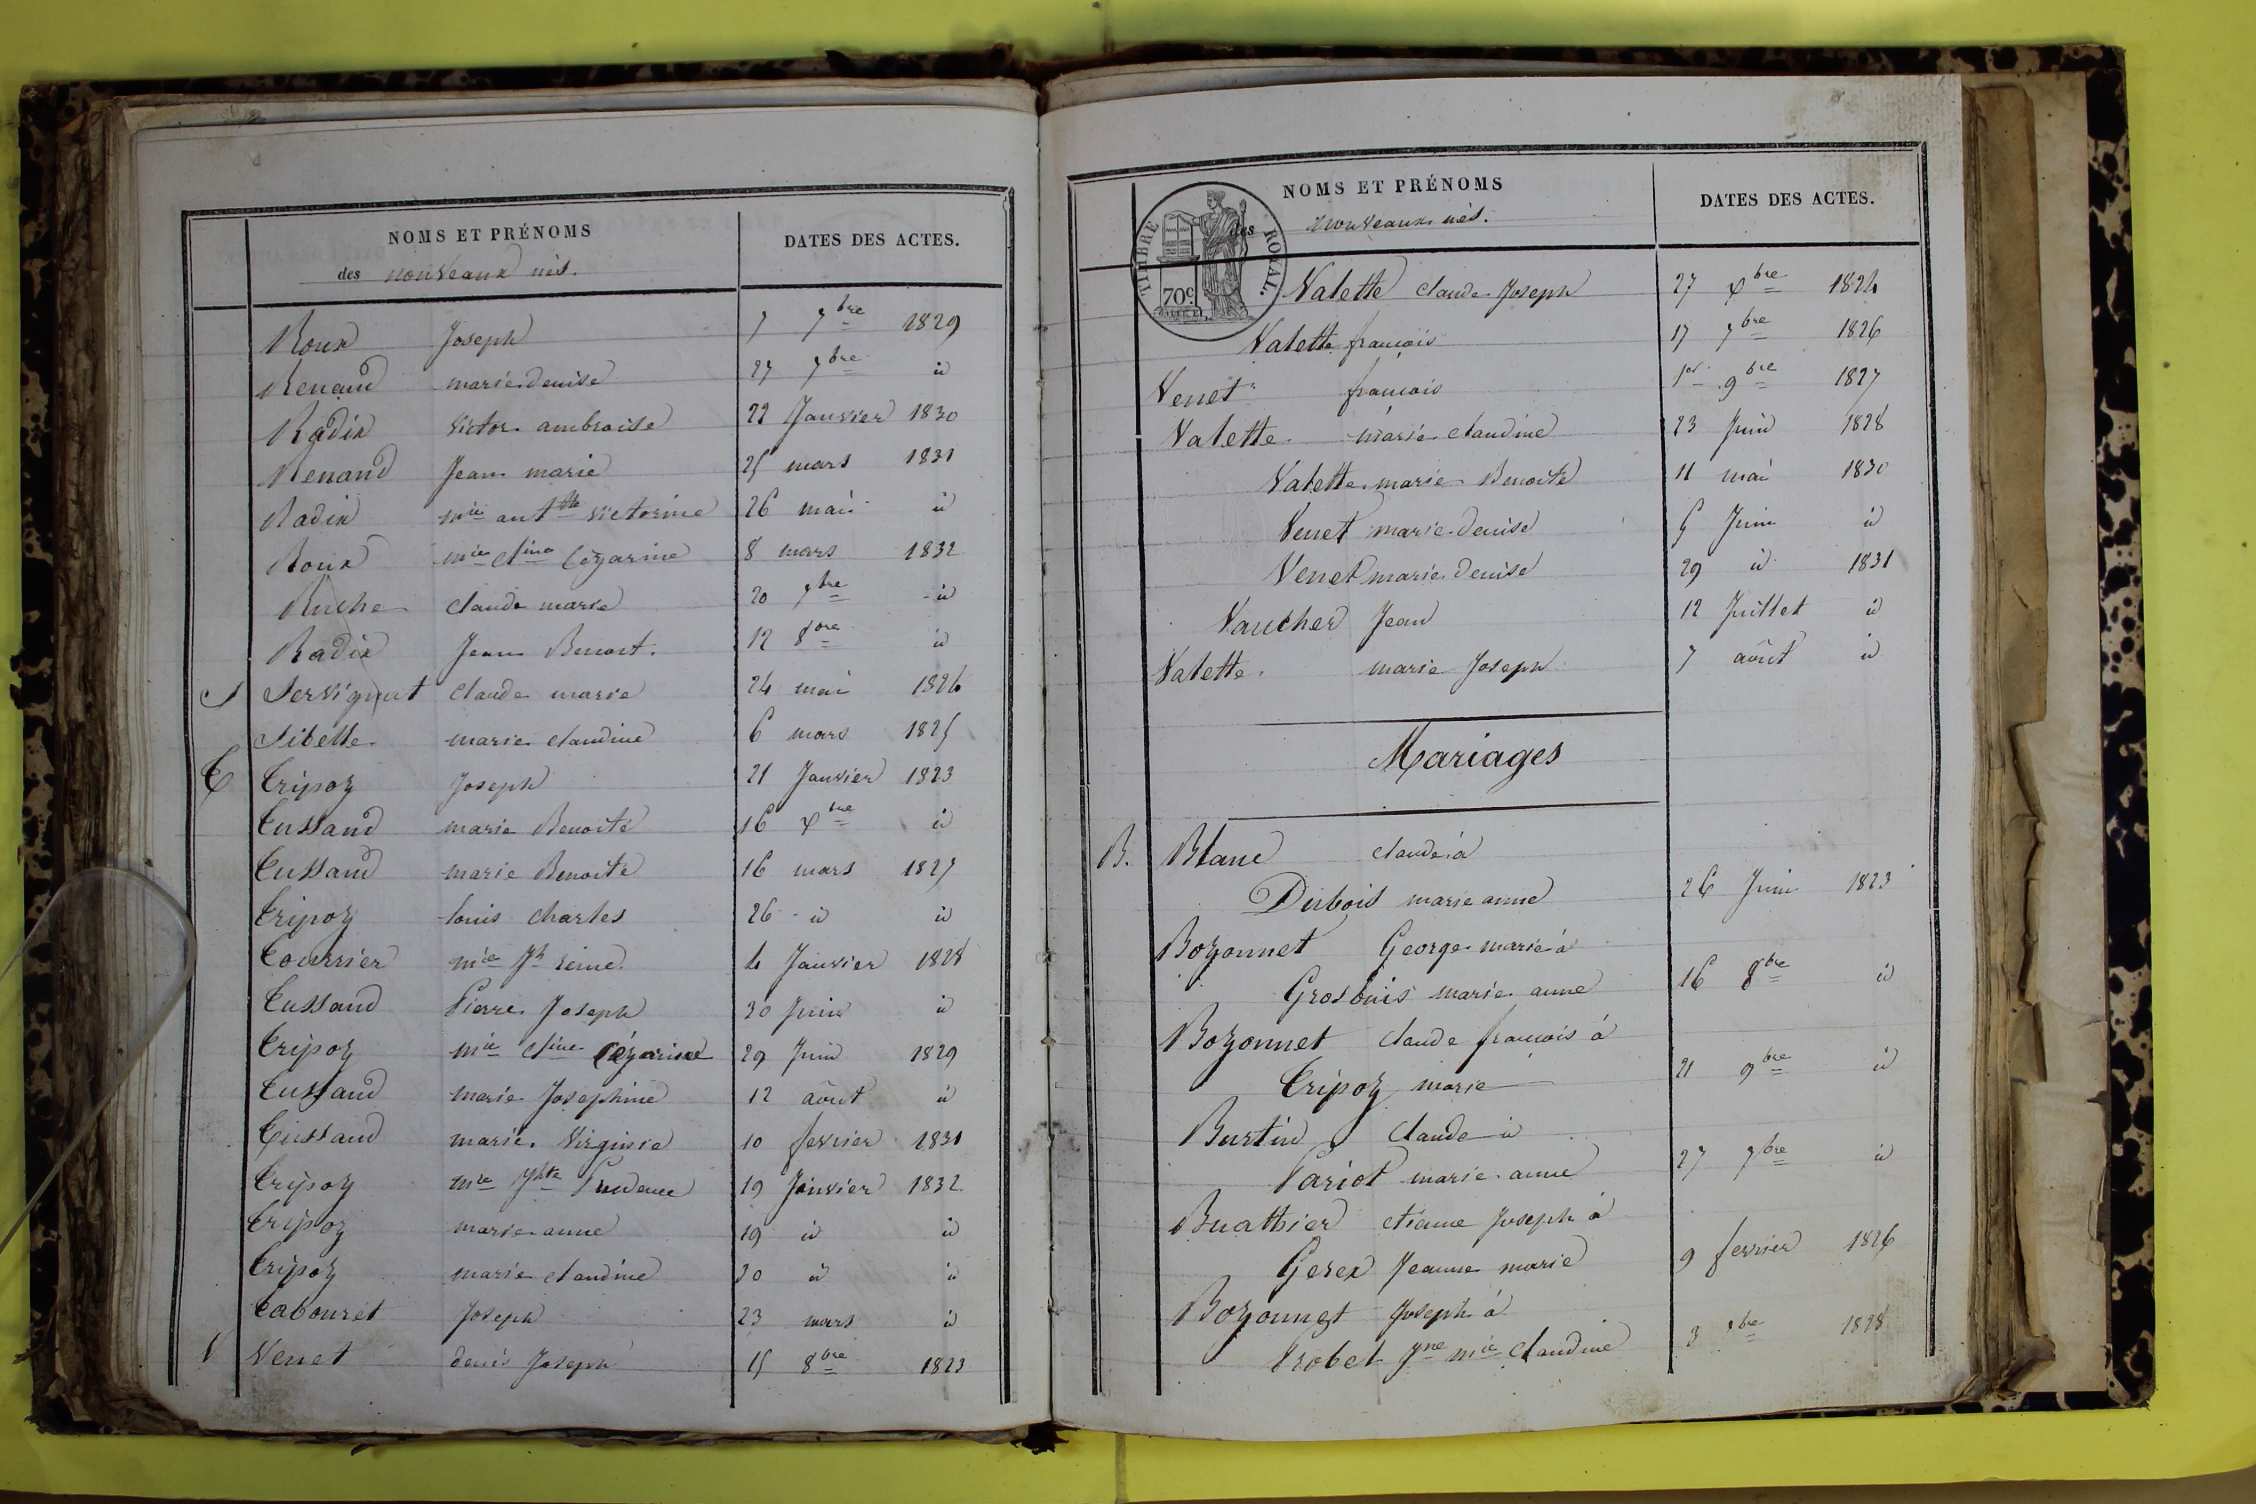 NOMS ET PRÉNOMS
des nouveaux nés.
DATES DES ACTES.
Roux Joseph 7 7bre 1829
Renaud marie denise 27 7bre id
Radix victor ambroise 22 Janvier 1830
Renaud Jean marie 25 mars 1831
Radix mie antte victorine 26 mai id
Roux mie cline Cézarine 8 mars 1832
Ruche claude marie 20 7bre id
Radix Jean Benoit 12 8bre id
S Servignat claude marie 24 mai 1824
Sibelle marie claudine 6 mars 1825
T Tripoz Joseph 21 Janvier 1823
Tussaud marie Benoite 16 xbre id
Tussaud marie Benoite 16 mars 1827
Tripoz louis charles 26 id id
Tourrier mie Jh reine 4 Janvier 1828
Tussaud Pierre Joseph 30 Juin id
Tripoz mie cline Cézarine 29 Juin 1829
Tussaud marie Josephine 12 août id
Tussaud marie Virginie 10 fevrier 1831
Tripoz mie Prudence 19 Janvier 1832
Tripoz marie anne 19 id id
Tripoz marie claudine 30 id id
Tabouret Joseph 23 mars id
V Venet denis Joseph 15 8bre 1823
NOMS ET PRÉNOMS
des nouveaux nés.
DATES DES ACTES.
TIMBRE ROYAL.
70c
Valette claude Joseph 27 xbre 1824
Valette francois 17 7bre 1826
Venet francois 1er 9bre 1827
Valette marie claudine 23 Juin 1828
Valette marie Benoite 11 mai 1830
Venet marie denise 5 Juin id
Venet marie denise 29 id 1831
Vaucher Jean 12 Juillet id
Valette marie Joseph 7 août id
Mariages
B. Blanc claude à
Dubois marie anne 26 Juin 1823
Bozonnet George marie à
Grosbuis marie anne 16 8bre id
Bozonnet claude francois à
Tripoz marie 21 9bre id
Burtin claude à
Pariot marie anne 27 7bre id
Buathier etienne Joseph à
Gerex Jeanne marie 9 fevrier 1826
Bozonnet Joseph à
Probet Jne mie claudine 3 1828